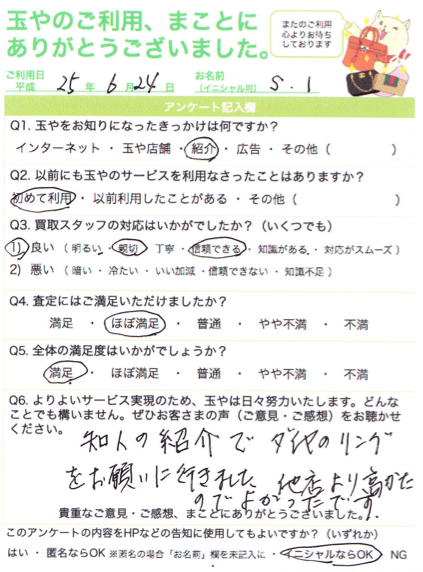 玉やのご利用、まことに
ありがとうございました。
またのご利用
心よりお待ち
しております
ご利用日
平成 25 年 6 月 24 日
お名前
(イニシャル可) S.I
アンケート記入欄
Q1. 玉やをお知りになったきっかけは何ですか?
インターネット ・ 玉や店舗 ・ 紹介 ・ 広告 ・ その他 ( )
Q2. 以前にも玉やのサービスを利用なさったことはありますか?
初めて利用 ・ 以前利用したことがある ・ その他 ( )
Q3. 買取スタッフの対応はいかがでしたか?(いくつでも)
1) 良い ( 明るい ・ 親切 ・ 丁寧 ・ 信頼できる ・ 知識がある ・ 対応がスムーズ )
2) 悪い ( 暗い ・ 冷たい ・ いい加減 ・ 信頼できない ・ 知識不足 )
Q4. 査定にはご満足いただけましたか?
満足 ・ ほぼ満足 ・ 普通 ・ やや不満 ・ 不満
Q5. 全体の満足度はいかがでしょうか?
満足 ・ ほぼ満足 ・ 普通 ・ やや不満 ・ 不満
Q6. よりよいサービス実現のため、玉やは日々努力いたします。どんな
ことでも構いません。ぜひお客さまの声(ご意見・ご感想)をお聴かせ
ください。
知人の紹介でダイヤのリング
をお願いに行きました 他店より高かた
のでよかったです.
貴重なご意見・ご感想、まことにありがとうございました。
このアンケートの内容をHPなどの告知に使用してもよいですか?(いずれか)
はい ・ 匿名ならOK ※匿名の場合「お名前」欄を未記入に ・ イニシャルならOK ・ NG